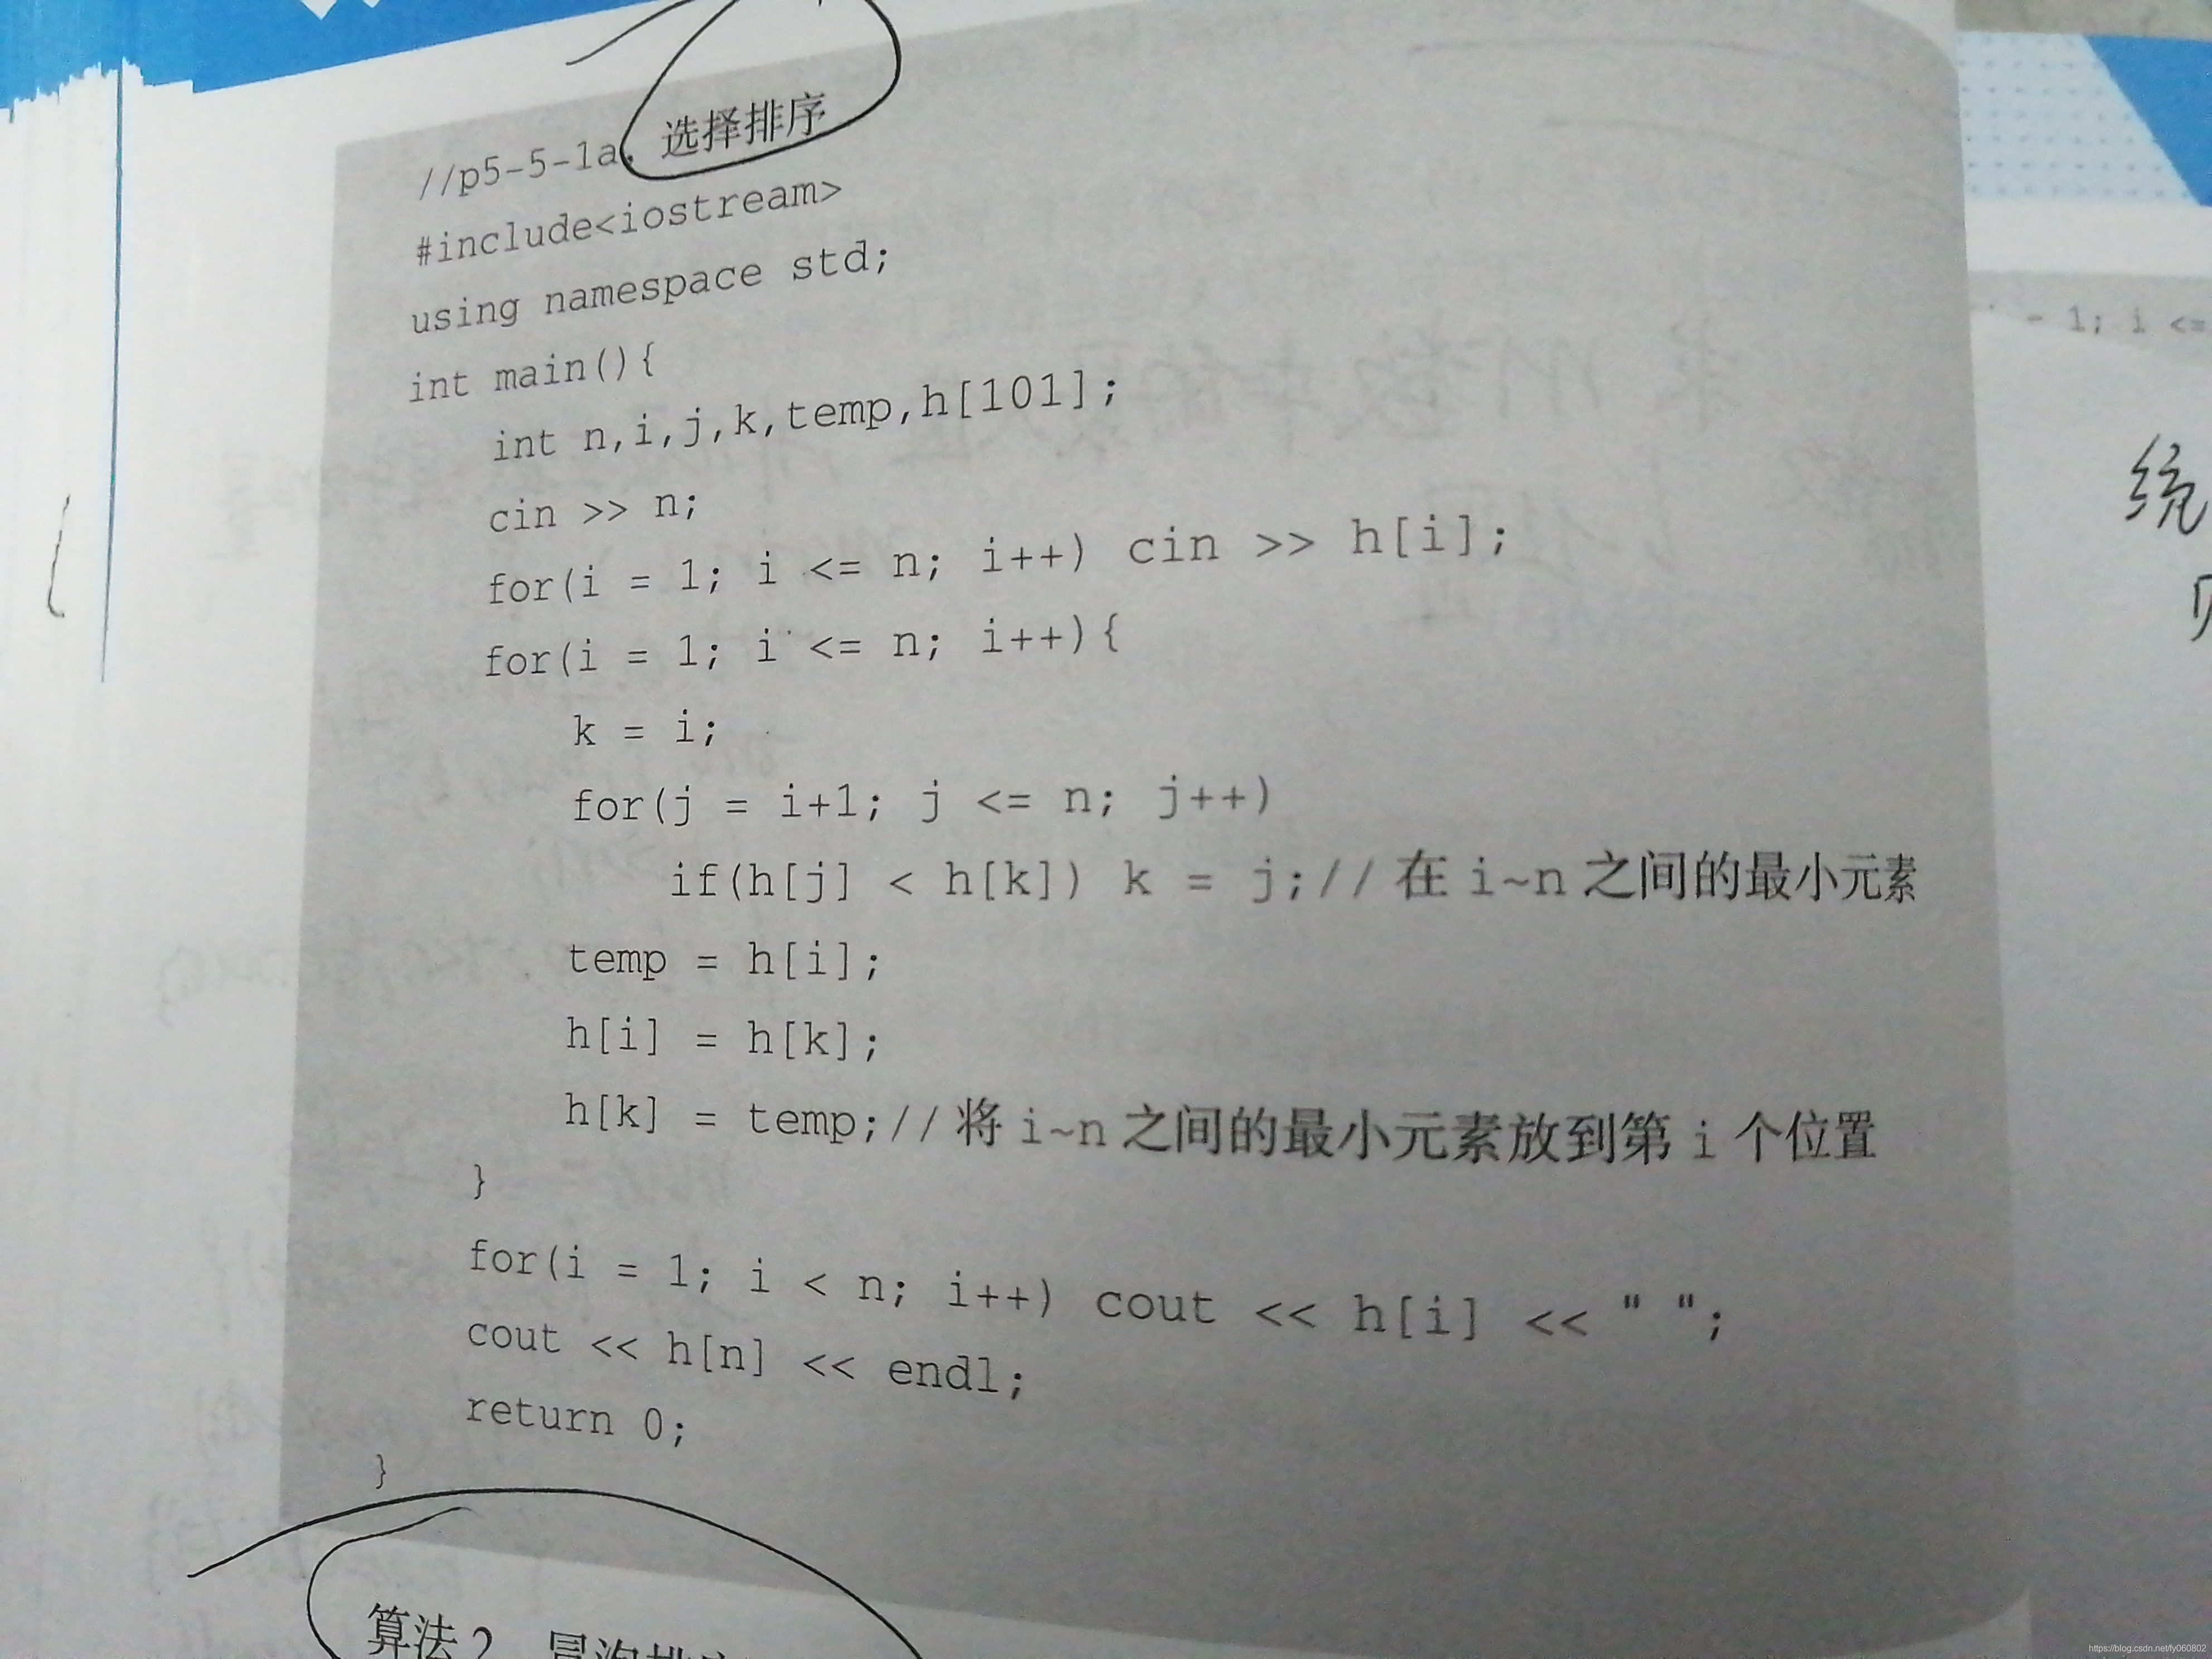 //p5-5-1a, 选择排序
#include<iostream>
using namespace std;
int main(){
    int n,i,j,k,temp,h[101];
    cin >> n;
    for(i = 1; i <= n; i++) cin >> h[i];
    for(i = 1; i <= n; i++){
        k = i;
        for(j = i+1; j <= n; j++)
            if(h[j] < h[k]) k = j;//在 i~n 之间的最小元素
        temp = h[i];
        h[i] = h[k];
        h[k] = temp;//将 i~n 之间的最小元素放到第 i 个位置
    }
    for(i = 1; i < n; i++) cout << h[i] << " ";
    cout << h[n] << endl;
    return 0;
}
算法2 冒泡排
- 1; i <=
统
https://blog.csdn.net/fy060802